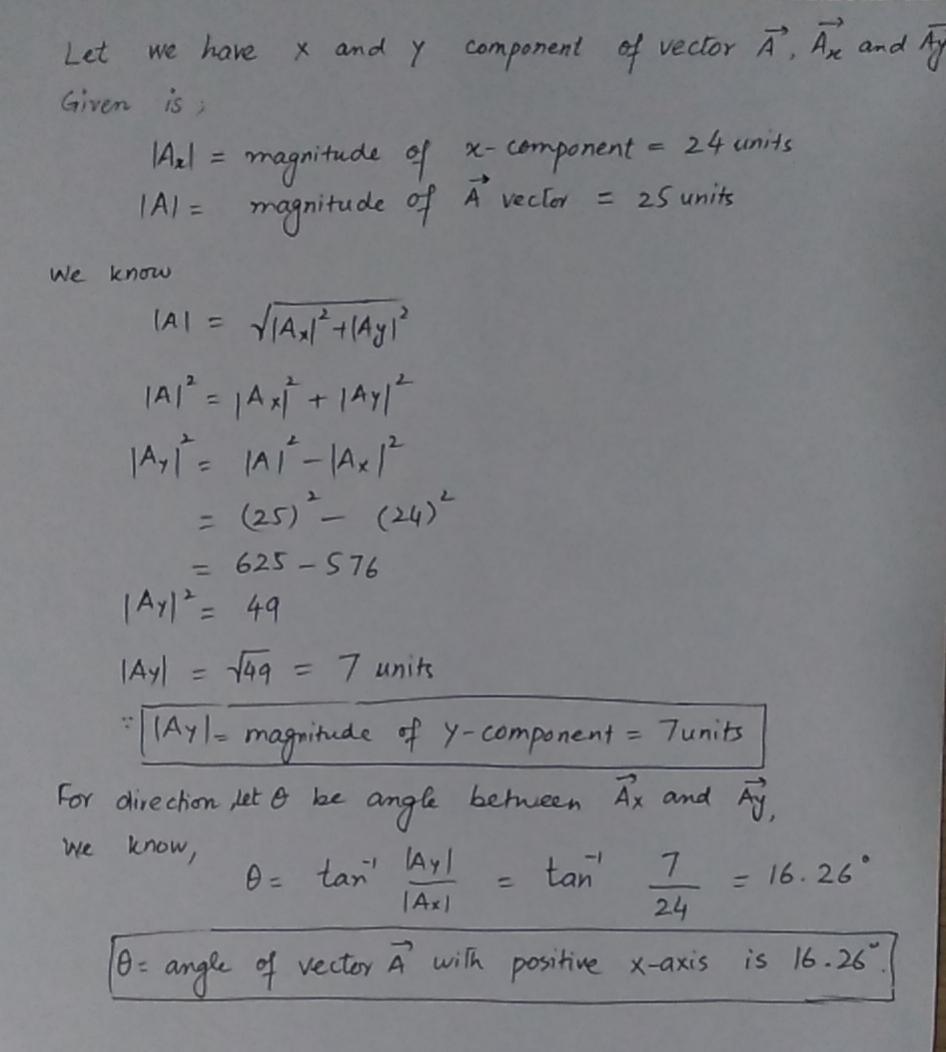 Let we have x and y component of vector A⃗, A⃗x and A⃗y
Given is ;
|Ax| = magnitude of x-component = 24 units
|A| = magnitude of A⃗ vector = 25 units
We know
|A| = √|Ax|²+|Ay|²
|A|² = |Ax|² + |Ay|²
|Ay|² = |A|² - |Ax|²
= (25)² - (24)²
= 625 - 576
|Ay|² = 49
|Ay| = √49 = 7 units
∵ |Ay| = magnitude of y-component = 7 units
For direction, let θ be angle between A⃗x and A⃗y,
We know,
θ = tan⁻¹ |Ay|/|Ax| = tan⁻¹ 7/24 = 16.26°
θ = angle of vector A⃗ with positive x-axis is 16.26°.